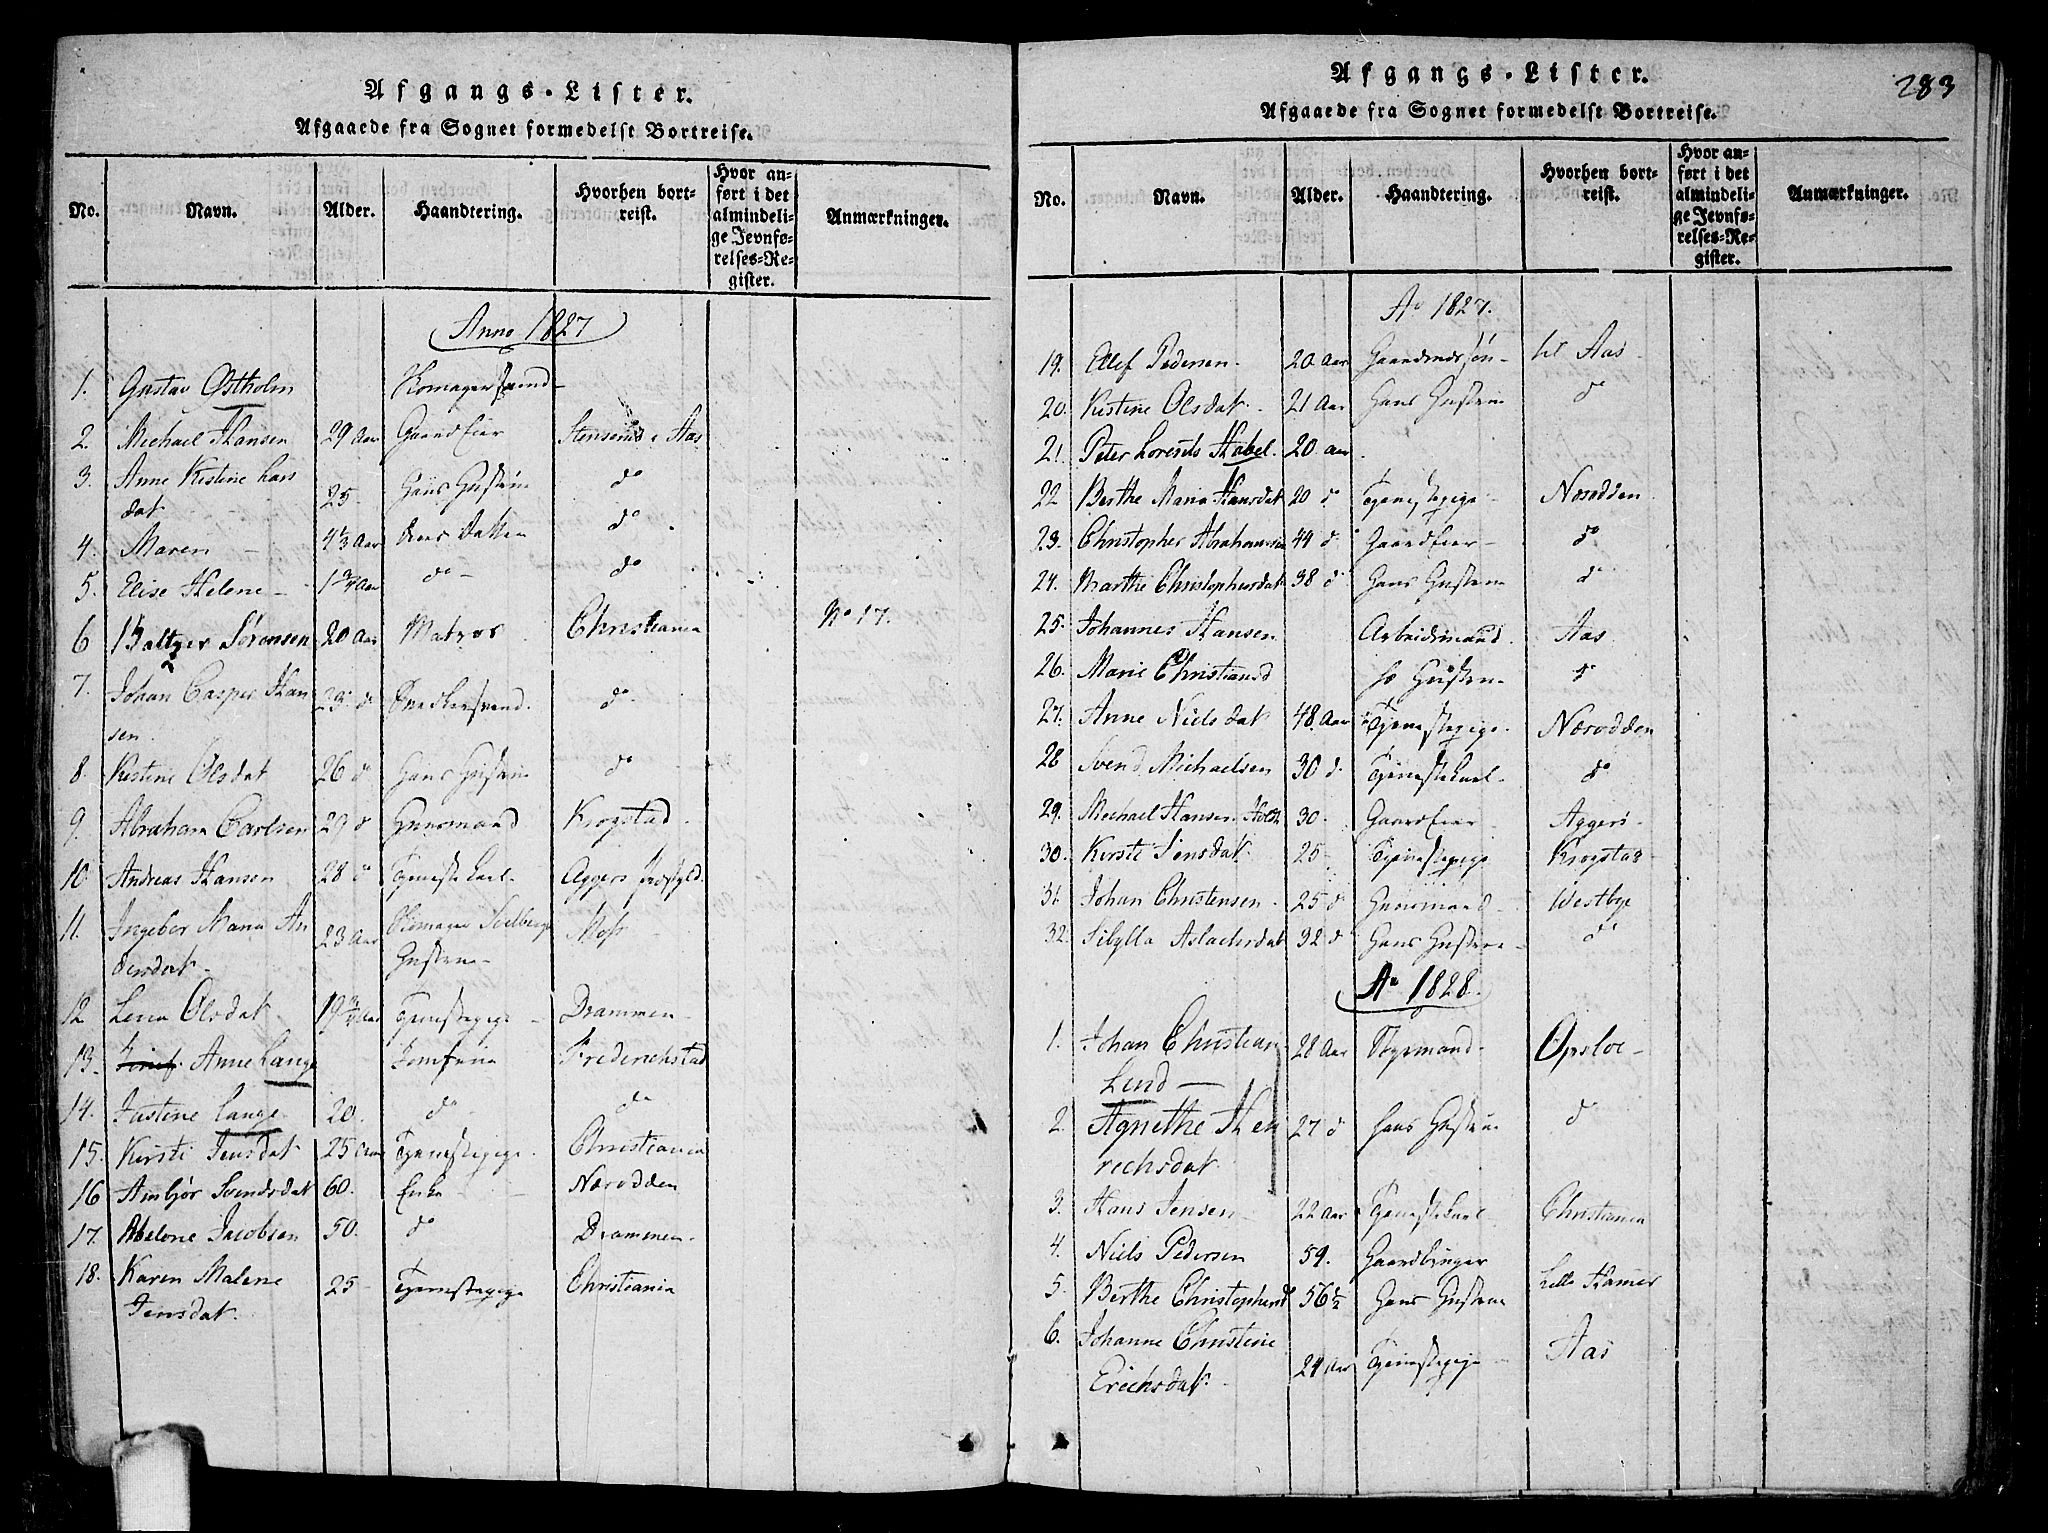 Afgangs-Lister.
Afgaaede fra Sognet formedelst Bortreise.
No. Navn. Alder. Haandtering. Hvorhen bortreist. Hvor anført i det almindelige Jevnførelses-Register. Anmærkninger.
Anno 1827
1. Gustav Ostholm
2. Michael Hansen 29 Aar Gaardeier Aas
3. Anne Kistine Lars
dat 25 Hans Hustrue do
4. Maren 4 1/3 Aar Deres Datter do
5. Elise Helene 1 3/4 Aar do do
6 Baltzer Sörensen 20 Aar Matros Christiania No 17.
7. Johan Casper Han
sen 23 d Snedkersvend do
8. Kistine Olsdat 26 d Hans Hustrue do
9. Abraham Carlsen 29 d Huusmand Krogstad
10. Andreas Hansen 28 d Tjenestekarl Aggers
11. Ingebor Maria An
dersdat 23 Aar Hustrue Moss
12 Lena Olsdat 19 3/4 Aar Tjenestepige Drammen
13. Anne Lange Jomfrue Frederichstad
14. Justine Lange 20. do do
15. Kirsti Jensdat 25 Aar Tjenestepige Christiania
16 Ambjör Svendsdat 60. Enke Næsodden
17. Abelone Jacobsen 50. do Drammen
18. Karen Malene
Jensdat. 25 Tjenestepige Christiania
Afgangs-Lister. 283
Afgaaede fra Sognet formedelst Bortreise.
No. Navn. Alder. Haandtering. Hvorhen bortreist. Hvor anført i det almindelige Jevnførelses-Register. Anmærkninger.
Ao 1827.
19. Ellef Pedersen 20 Aar Gaardmandssön til Aas
20. Kistine Olsdat 21 Aar Hans Hustrue do
21. Peter Lorents Stabel. 20 aar
22 Berthe Maria Hansdat 20 d Tjenestepige Næsodden
23. Christopher Abrahamsen 44 d Gaardeier do
24. Marthe Christophersdat 38 d Hans Hustrue do
25. Johannes Hansen Arbeidsmand Aas
26. Marie Christiansd Hustrue do
27. Anne Nielsdat 48 Aar Tjenestepige Næsodden
28 Svend Michaelsen 30 d Tjenestekarl do
29. Michael Hansen 30. Gaardeier Aggers
30. Kirsti Jensdat 25 Tjenestepige Krogstad
31. Johan Christensen 25 d Huusmand Westbye
32. Sibylla Aslachsdat 32 d Hans Hustrue do
Ao 1828.
1. Johan Christian
Lend 28 Aar Opsloe
2. Agnethe Hen
richsdat 27 d Hans Hustrue do
3. Hans Jensen 22 Aar Tjenestekarl Christiania
4. Niels Pedersen 59. Gaardbruger
5. Berthe Christophersd 56 1/2 Hans Hustrue Lille Hamer
6. Johanne Christine
Erichsdat. 24 Aar Tjenestepige Aas